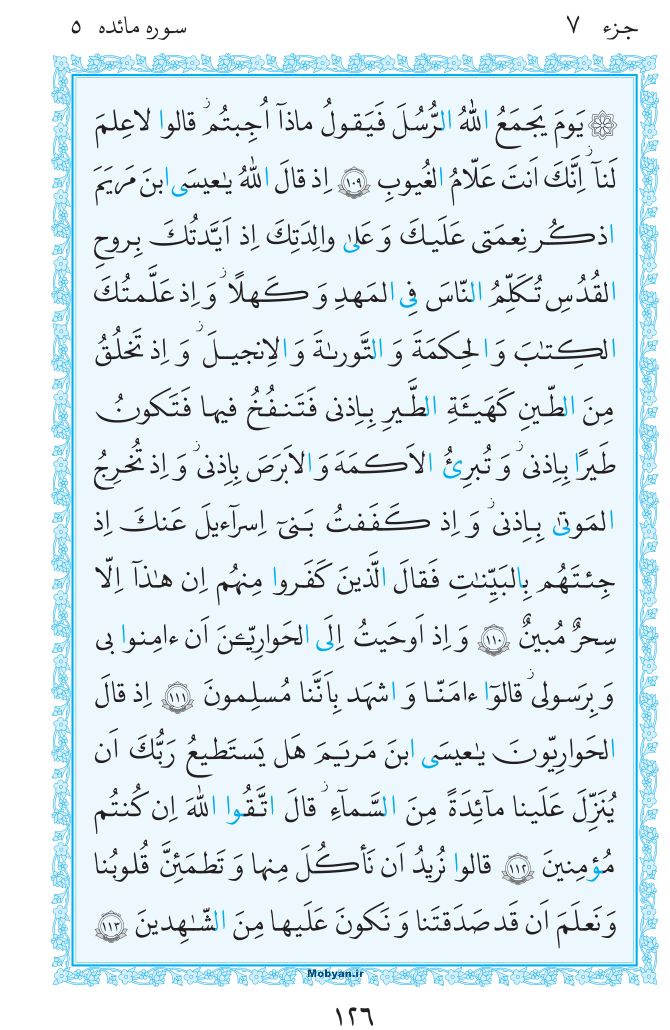 جزء ٧ سوره مائده ٥
۞ يَومَ يَجمَعُ اللهُ الرُّسُلَ فَيَقولُ ماذآ اُجِبتُم ۖ قالوا لاعِلمَ
لَنآ ۖ اِنَّكَ اَنتَ عَلّامُ الغُيوبِ ﴿١٠٩﴾ اِذ قالَ اللهُ يٰعيسَى ابنَ مَريَمَ
اذكُر نِعمَتى عَلَيكَ وَ عَلىٰ والِدَتِكَ اِذ اَيَّدتُكَ بِروحِ
القُدُسِ تُكَلِّمُ النّاسَ فِى المَهدِ وَ كَهلًا ۖ وَ اِذ عَلَّمتُكَ
الكِتٰبَ وَ الحِكمَةَ وَ التَّورىٰةَ وَ الاِنجيلَ ۖ وَ اِذ تَخلُقُ
مِنَ الطّينِ كَهَيـَٔةِ الطَّيرِ بِاِذنى فَتَنفُخُ فيها فَتَكونُ
طَيرًا بِاِذنى ۖ وَ تُبرِئُ الاَكمَهَ وَ الاَبرَصَ بِاِذنى ۖ وَ اِذ تُخرِجُ
المَوتىٰ بِاِذنى ۖ وَ اِذ كَفَفتُ بَنىٓ اِسرآءيلَ عَنكَ اِذ
جِئتَهُم بِالبَيِّنٰتِ فَقالَ الَّذينَ كَفَروا مِنهُم اِن هٰذآ اِلّا
سِحرٌ مُبينٌ ﴿١١٠﴾ وَ اِذ اَوحَيتُ اِلَى الحَوارِيّـۧنَ اَن ءامِنوا بى
وَ بِرَسولى ۖ قالوٓا ءامَنّا وَ اشهَد بِاَنَّنا مُسلِمونَ ﴿١١١﴾ اِذ قالَ
الحَوارِيّونَ يٰعيسَى ابنَ مَريَمَ هَل يَستَطيعُ رَبُّكَ اَن
يُنَزِّلَ عَلَينا مآئِدَةً مِنَ السَّمآءِ ۖ قالَ اتَّقُوا اللهَ اِن كُنتُم
مُؤمِنينَ ﴿١١٢﴾ قالوا نُريدُ اَن نَأكُلَ مِنها وَ تَطمَئِنَّ قُلوبُنا
وَ نَعلَمَ اَن قَد صَدَقتَنا وَ نَكونَ عَلَيها مِنَ الشّٰهِدينَ ﴿١١٣﴾
Mobyan.ir
١٢٦